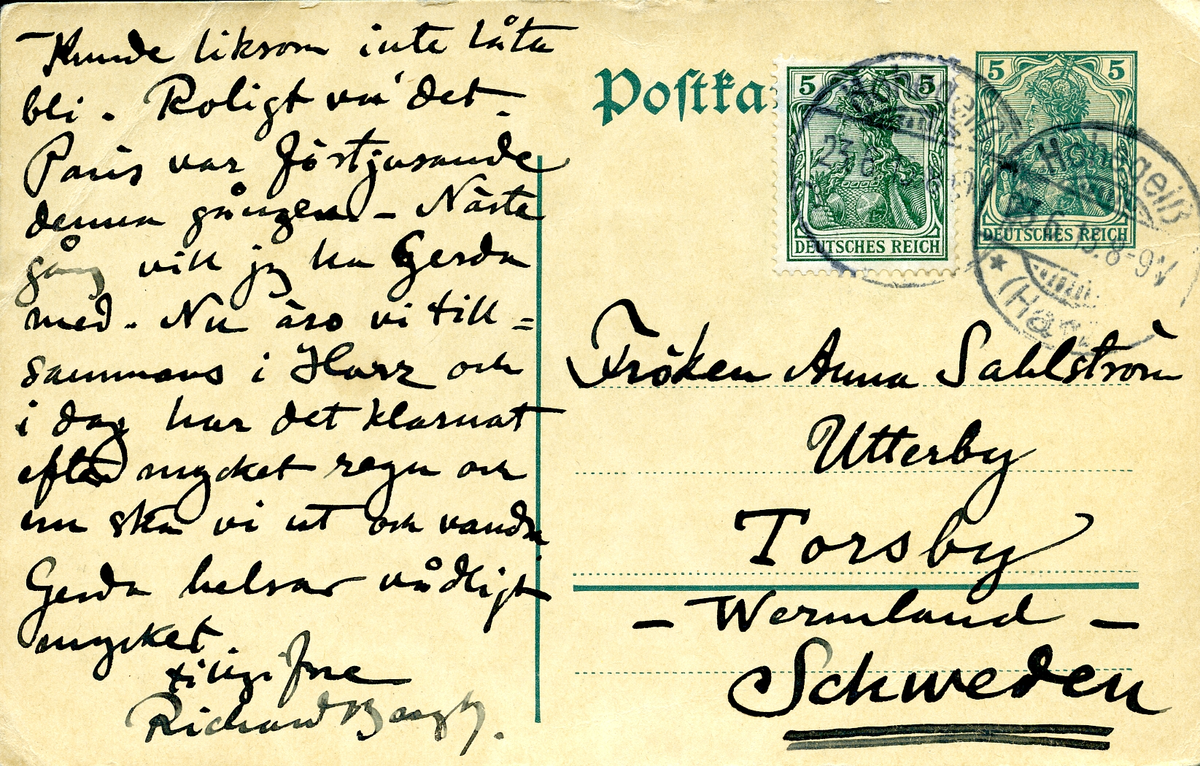 Kunde liksom inte låta
bli. Roligt va' det.
Paris var förtjusande
denna gången – Nästa
gång vill jg ha Gerda
med. Nu äro vi till=
sammans i Harz och
i dag har det klarnat
efter mycket regn och
nu ska vi ut och vandra
Gerda helsar våldligt
mycket.
tillgifne
Richard Bergh.
Postka
5 5
DEUTSCHES REICH
5 5
DEUTSCHES REICH
Hohegeiß
23.6.13.8-9V
*(Harz
Fröken Anna Sahlström
Utterby
Torsby
– Wermland –
Schweden